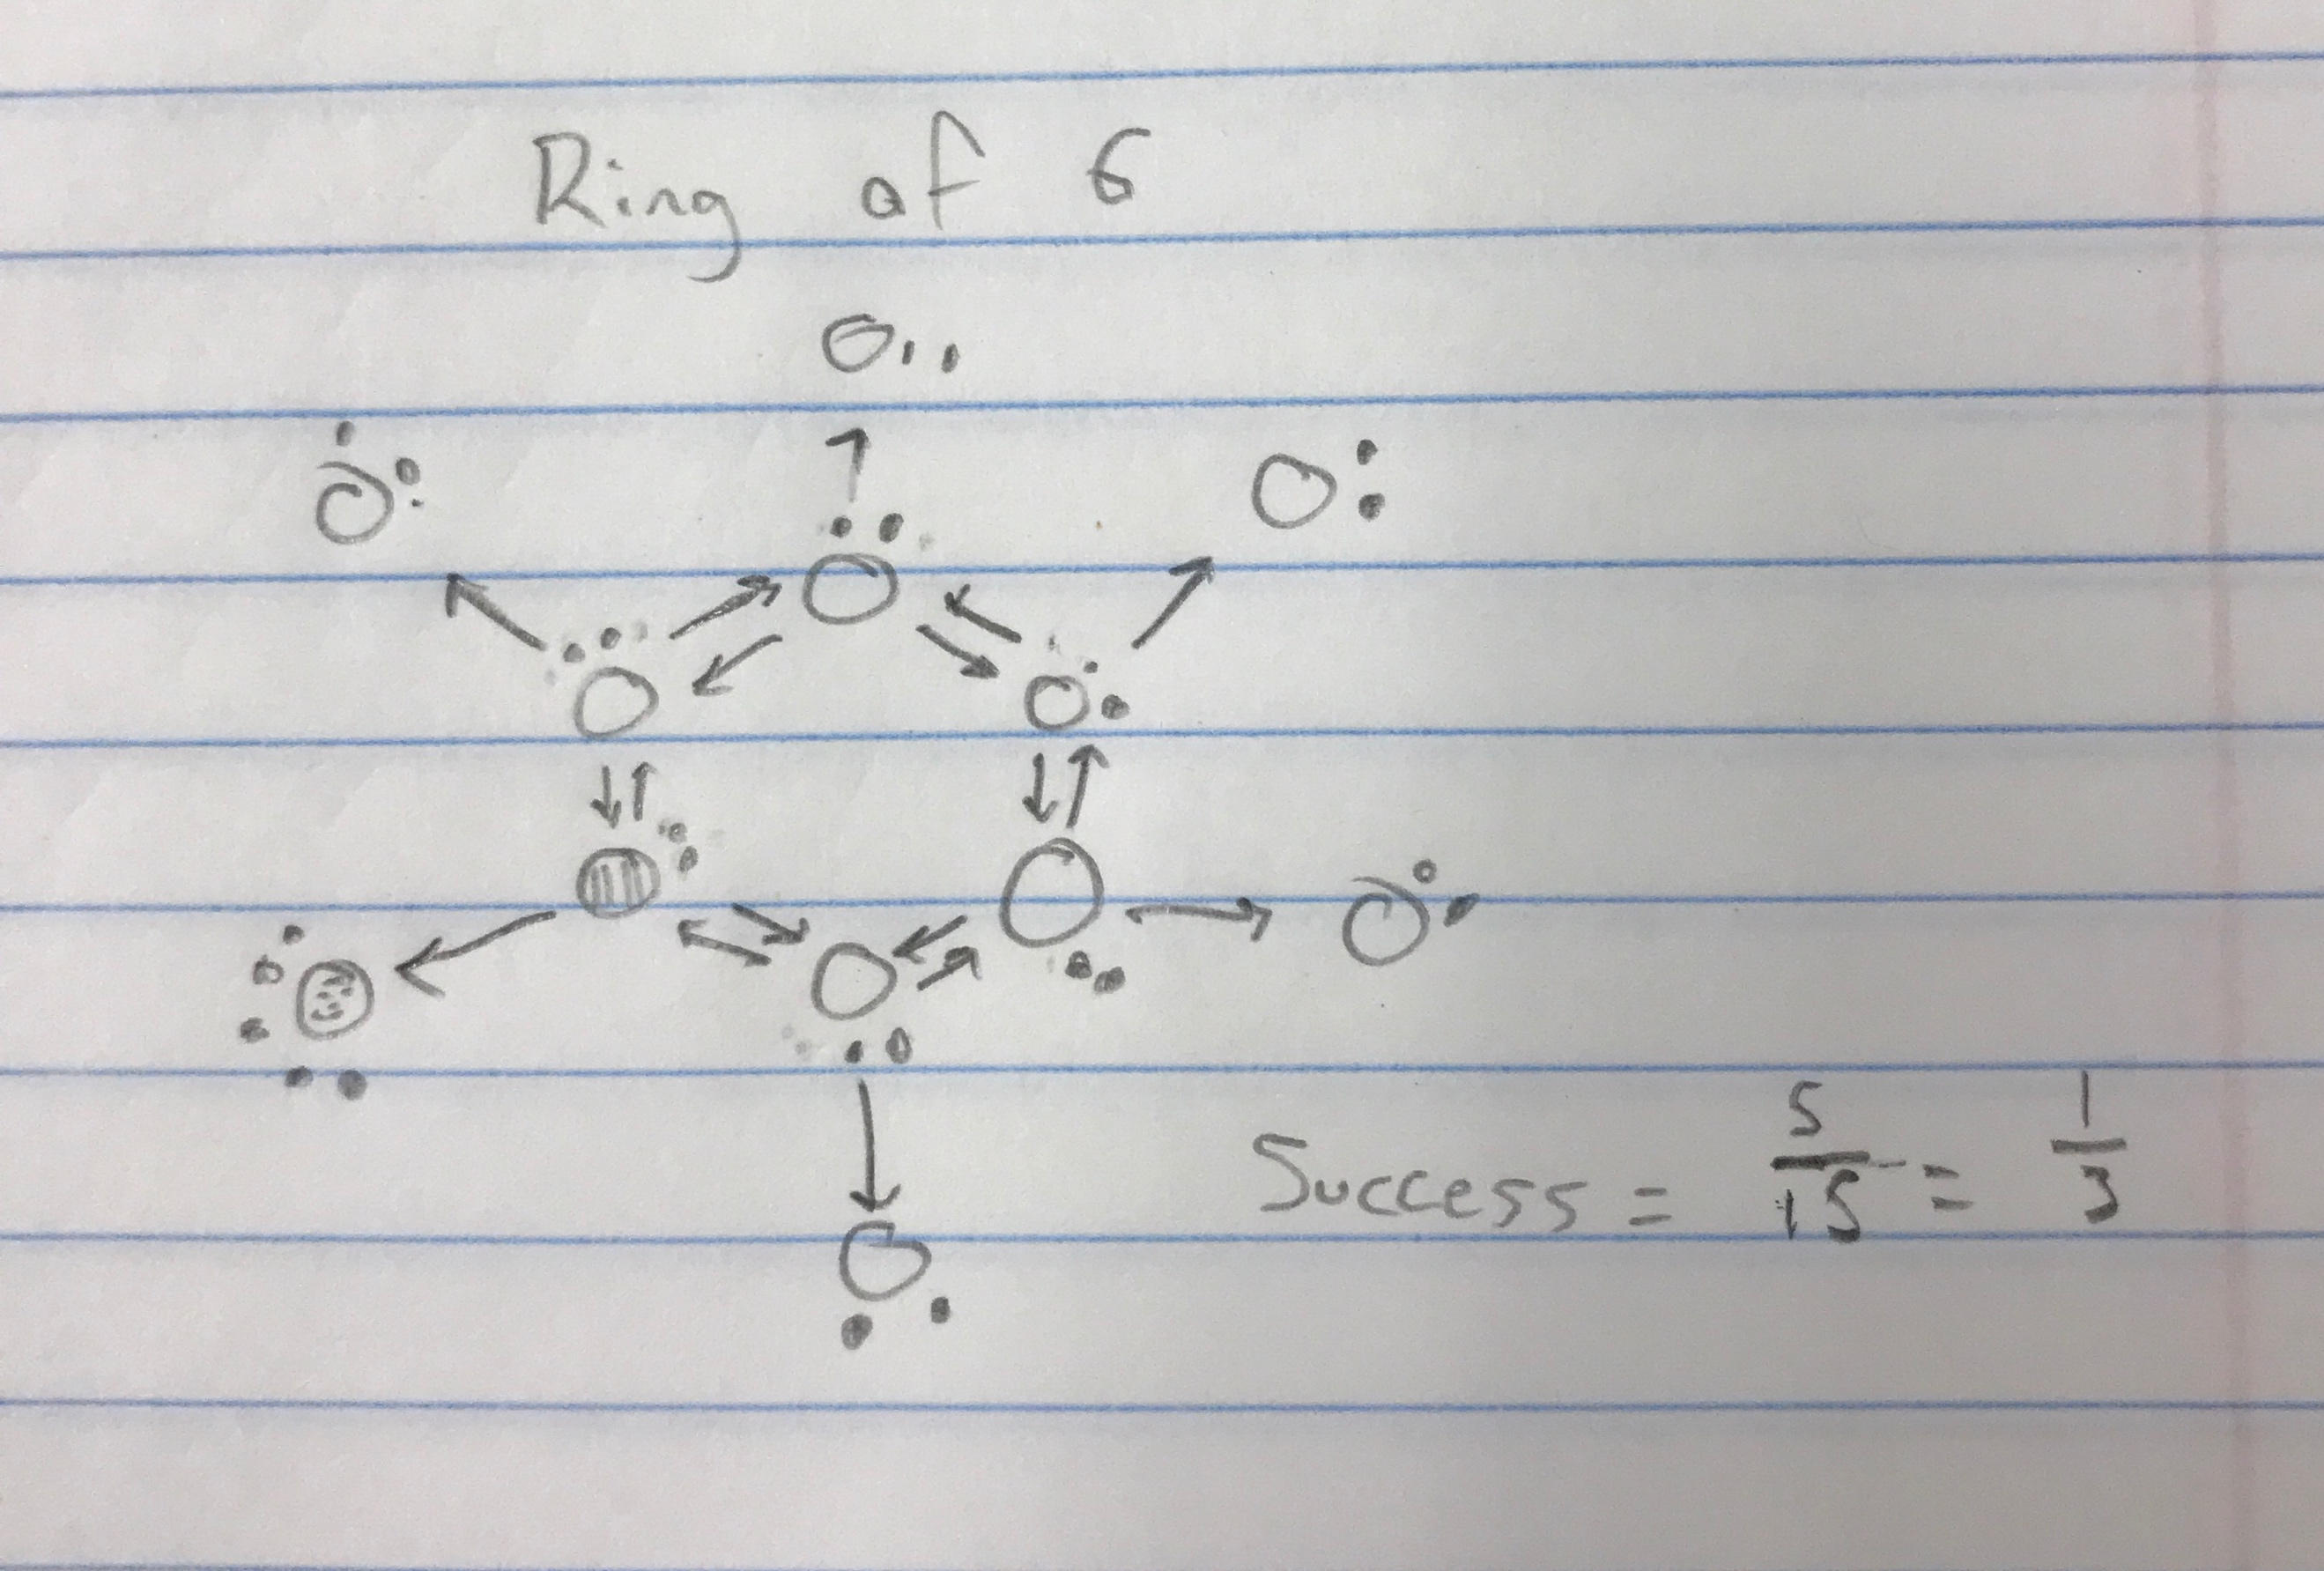 Ring of 6
Success = 5/15 = 1/3